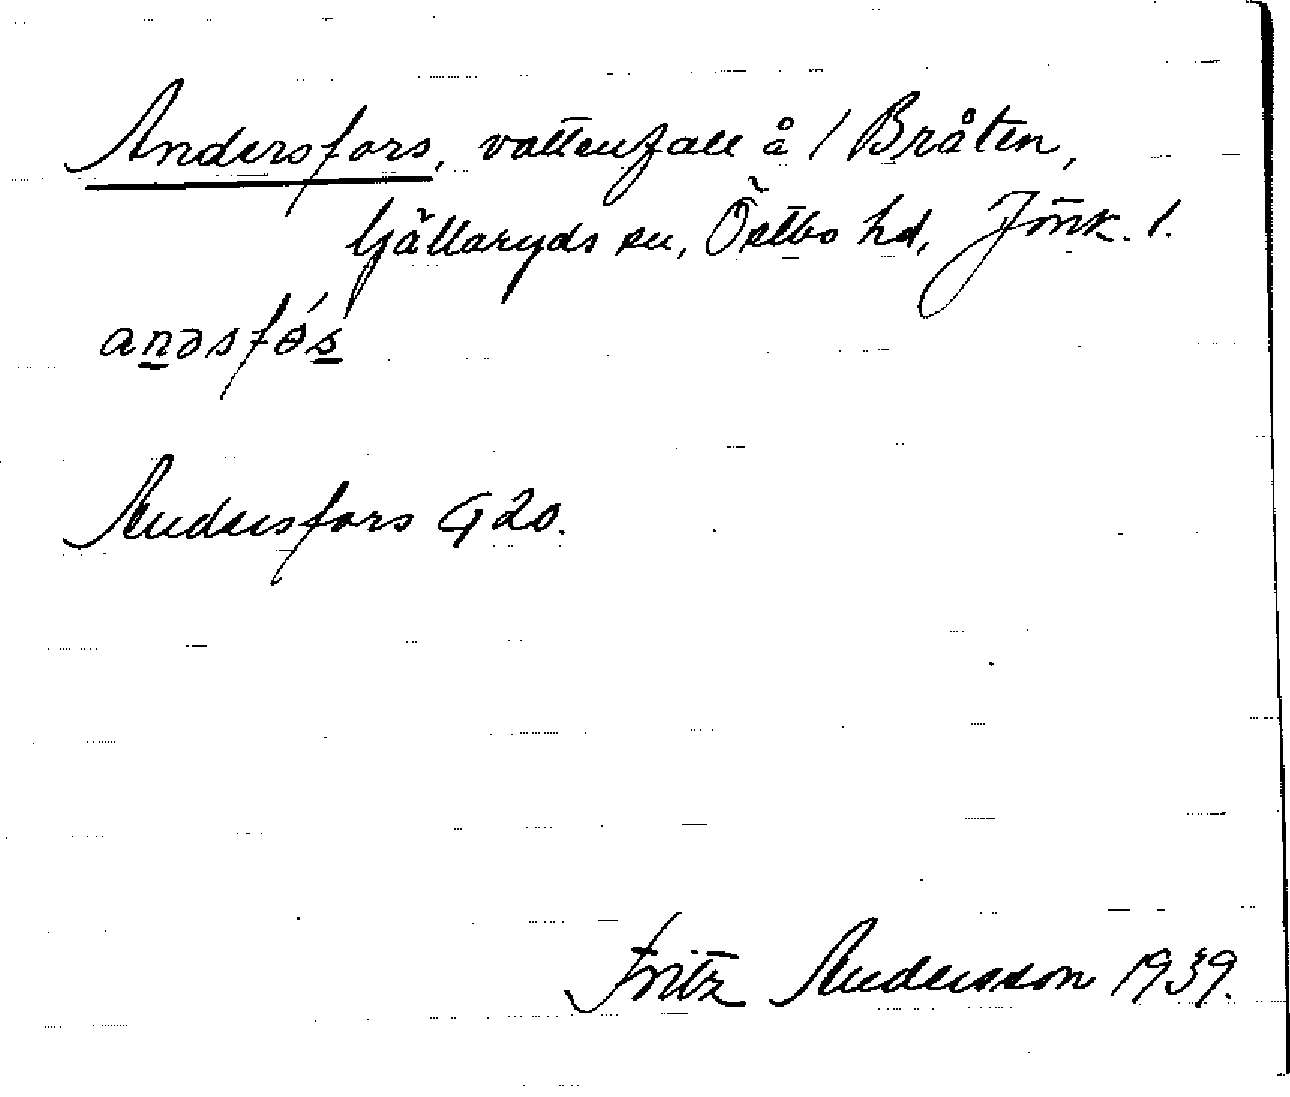 Andersfors, vattenfall å / Bråten,
Gällaryds sn, Östbo hd, Jönk. l.
anəsfǿs
Andersfors G 20.
Fritz Andersson 1939.